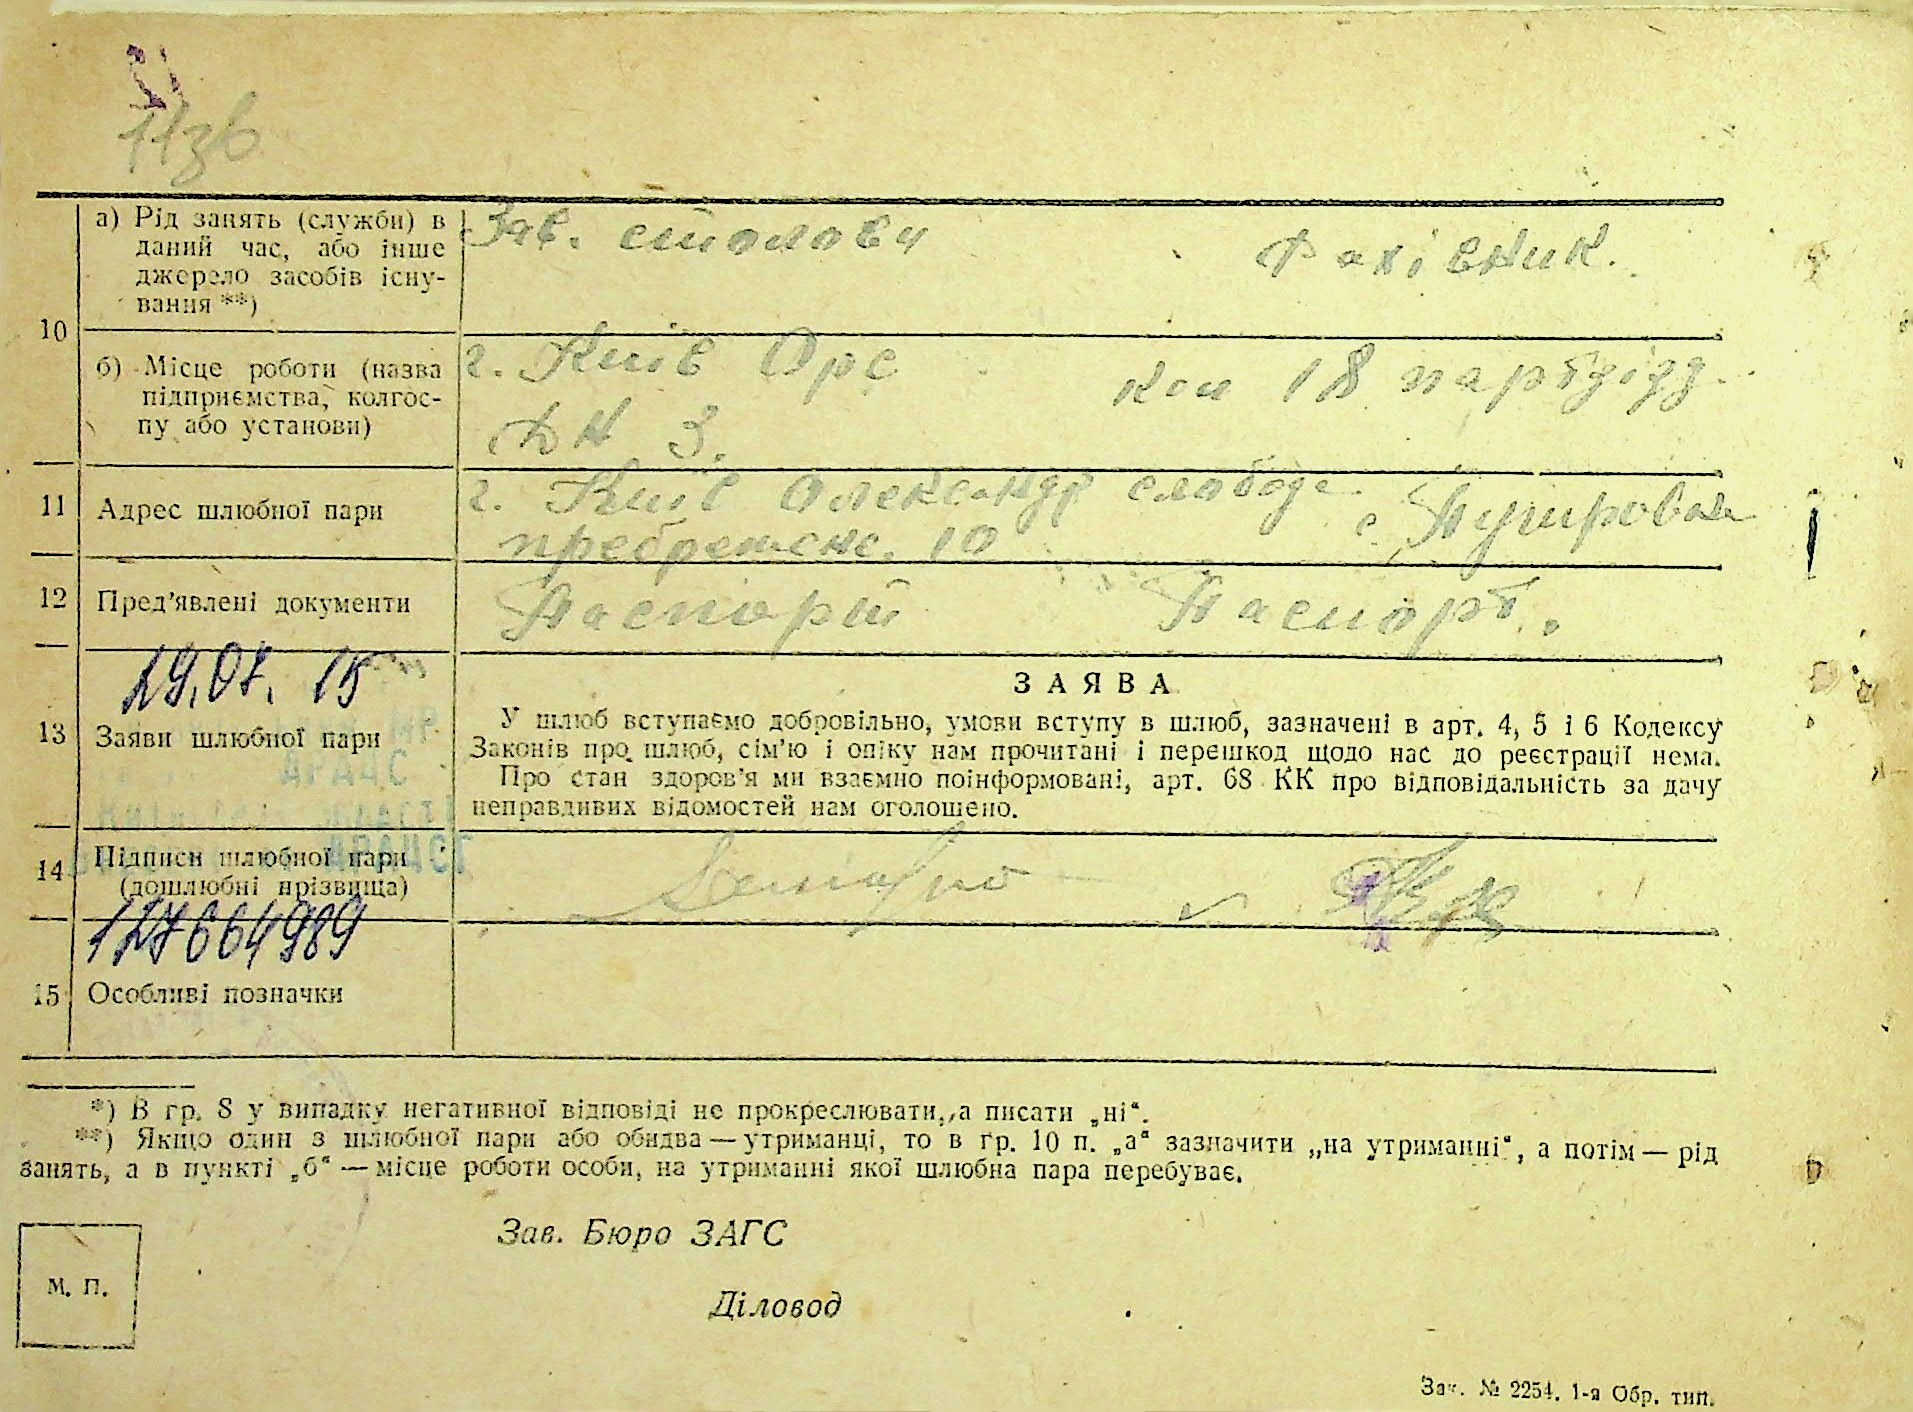 11зв
а) Рід занять (служби) в
даний час, або інше
джерело засобів існу-
вання **)
Зав. столови
Рахівник.
10
б) Місце роботи (назва
підприємства, колгос-
пу або установи)
г. Київ Орс
ДН 3.
кон 18
11
Адрес шлюбної пари
г. Київ Олександр слабода
10
с.
12
Пред'явлені документи
Паспорт
Паспорт.
29.07.15
13
Заяви шлюбної пари
ЗАЯВА
У шлюб вступаємо добровільно, умови вступу в шлюб, зазначені в арт. 4, 5 і 6 Кодексу
Законів про шлюб, сім'ю і опіку нам прочитані і перешкод щодо нас до реєстрації нема.
Про стан здоров'я ми взаємно поінформовані, арт. 68 КК про відповідальність за дачу
неправдивих відомостей нам оголошено.
14
Підписи шлюбної пари
(дошлюбні прізвища)
127664989
15
Особливі позначки
*) В гр. 8 у випадку негативної відповіді не прокреслювати, а писати „ні“.
**) Якщо один з шлюбної пари або обидва — утриманці, то в гр. 10 п. „а“ зазначити „на утриманні“, а потім — рід
занять, а в пункті „б“ — місце роботи особи, на утриманні якої шлюбна пара перебуває.
Зав. Бюро ЗАГС
М. П.
Діловод
Зак. № 2254. 1-а Обр. тип.